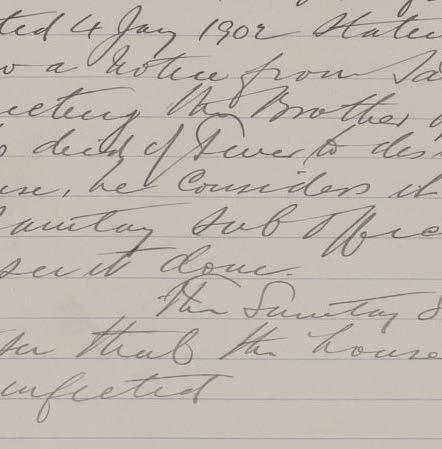 ted 4 Jany 1902 State
o a Notice from Sa
ecting the Brother
o died of Fever to des
use, he Considers it
Sanitay Sub Offic
see it done.
The Sanitay S
see that the house
infected